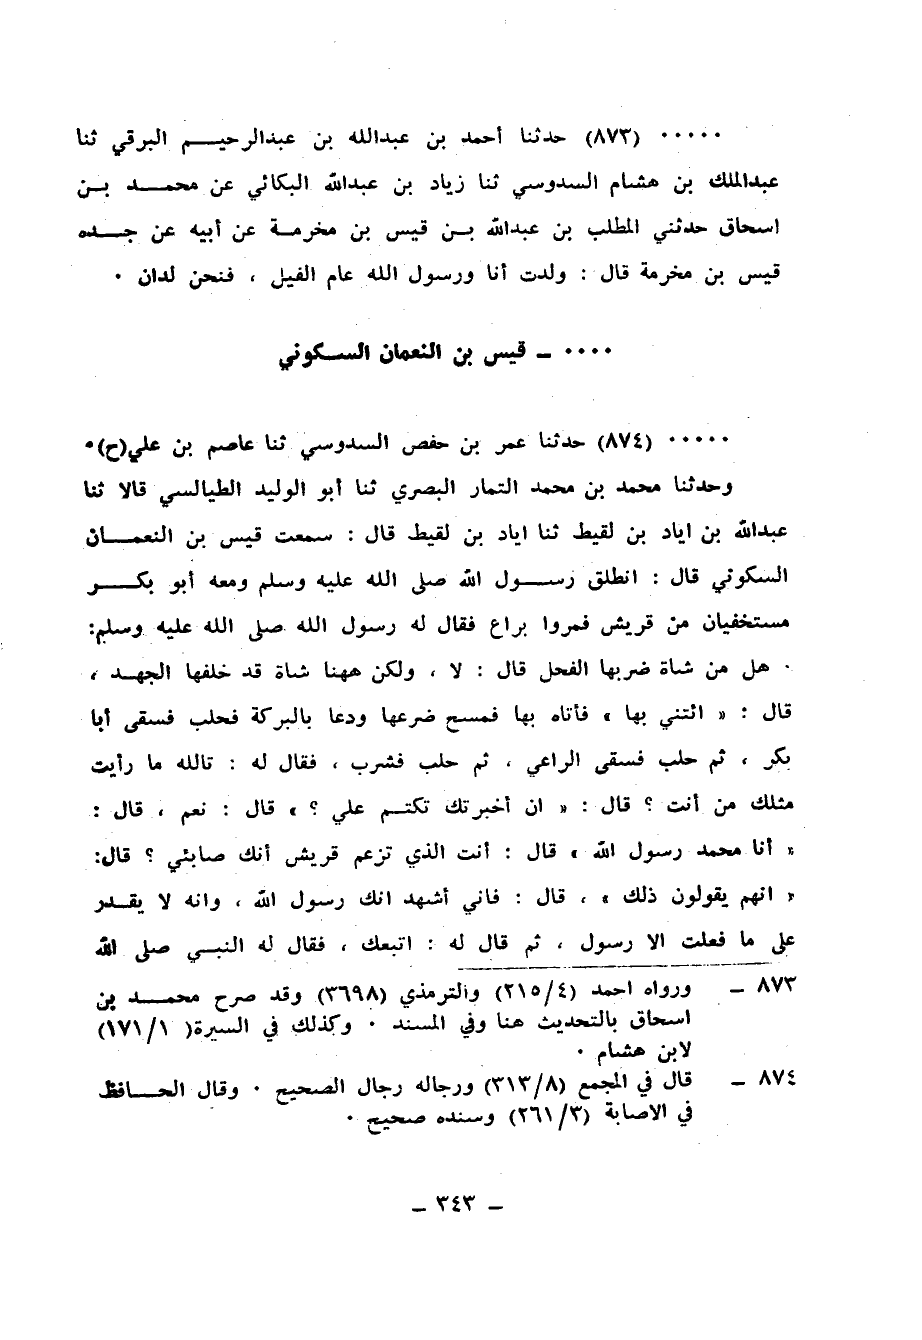 ٠٠٠٠٠ (٨٧٣) حدثنا أحمد بن عبدالله بن عبدالرحيم البرقي ثنا
عبدالملك بن هشام السدوسي ثنا زياد بن عبدالله البكائي عن محمد بن
اسحاق حدثني المطلب بن عبدالله بن قيس بن مخرمة عن أبيه عن جده
قيس بن مخرمة قال : ولدت أنا ورسول الله عام الفيل ، فنحن لدان ٠
٠٠٠٠ ـ قيس بن النعمان السكوني
٠٠٠٠٠ (٨٧٤) حدثنا عمر بن حفص السدوسي ثنا عاصم بن علي(ح)٠
وحدثنا محمد بن محمد التمار البصري ثنا أبو الوليد الطيالسي قالا ثنا
عبدالله بن اياد بن لقيط ثنا اياد بن لقيط قال : سمعت قيس بن النعمان
السكوني قال : انطلق رسول الله صلى الله عليه وسلم ومعه أبو بكر
مستخفيان من قريش فمروا براع فقال له رسول الله صلى الله عليه وسلم:
٠ هل من شاة ضربها الفحل قال : لا ، ولكن ههنا شاة قد خلفها الجهد ،
قال : « ائتني بها » فأتاه بها فمسح ضرعها ودعا بالبركة فحلب فسقى أبا
بكر ، ثم حلب فسقى الراعي ، ثم حلب فشرب ، فقال له : تالله ما رأيت
مثلك من أنت ؟ قال : « ان أخبرتك تكتم علي ؟ » قال : نعم ، قال :
« أنا محمد رسول الله » قال : أنت الذي تزعم قريش أنك صابئي ؟ قال:
« انهم يقولون ذلك » ، قال : فاني أشهد انك رسول الله ، وانه لا يقدر
على ما فعلت الا رسول ، ثم قال له : اتبعك ، فقال له النبي صلى الله
٨٧٣ ـ ورواه احمد (٢١٥/٤) والترمذي (٣٦٩٨) وقد صرح محمد بن
اسحاق بالتحديث هنا وفي المسند ٠ وكذلك في السيرة( ١٧١/١)
لابن هشام ٠
٨٧٤ ـ قال في المجمع (٣١٣/٨) ورجاله رجال الصحيح ٠ وقال الحافظ
في الاصابة (٢٦١/٣) وسنده صحيح ٠
ـ ٣٤٣ ـ